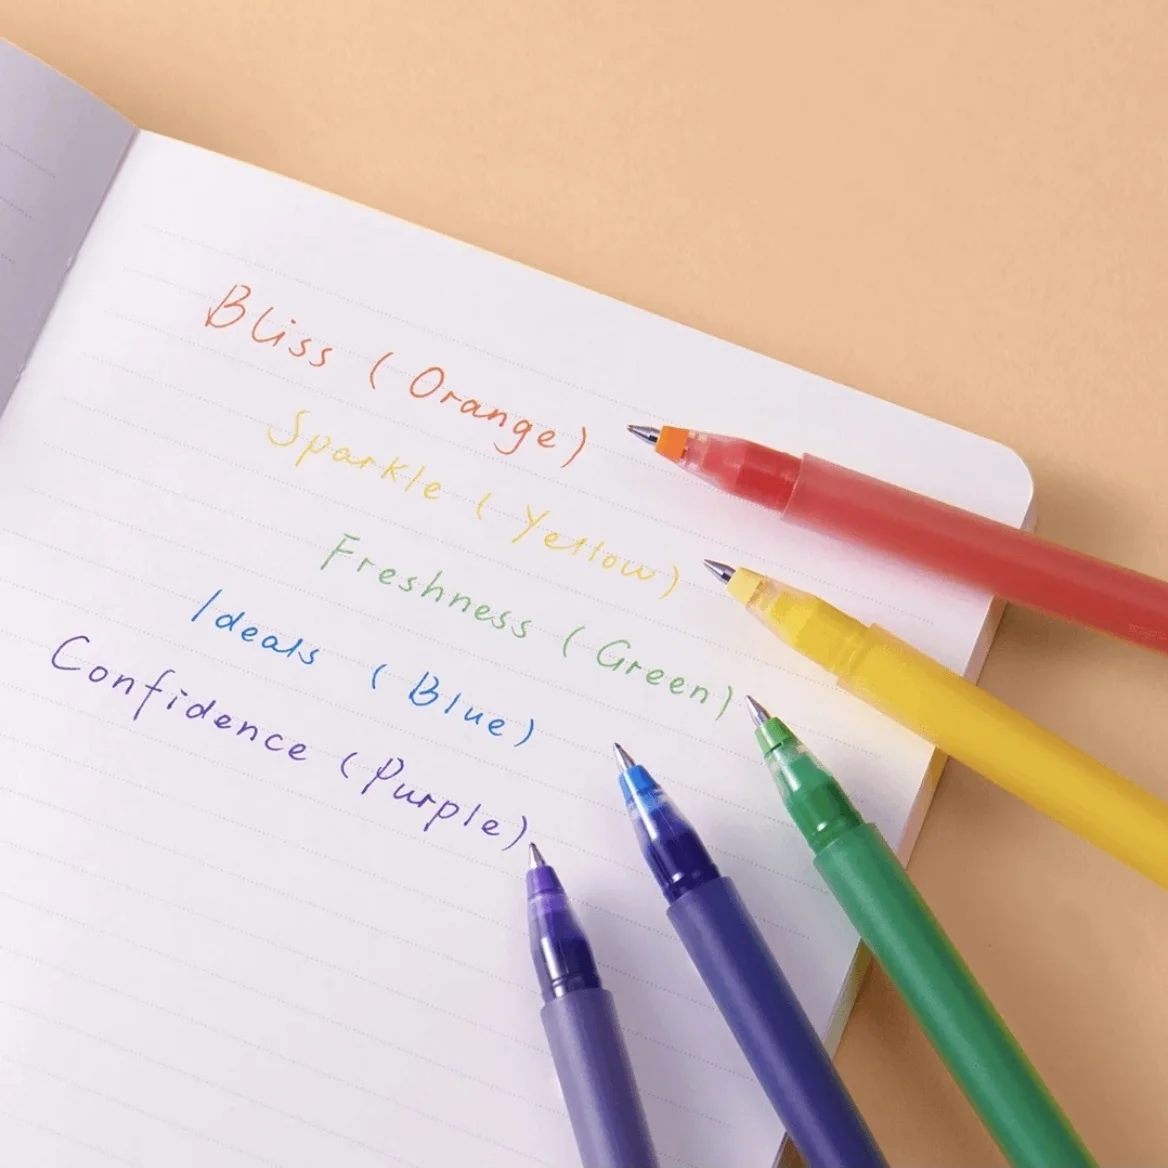 Bliss (Orange)
Sparkle (Yellow)
Freshness (Green)
Ideals (Blue)
Confidence (Purple)